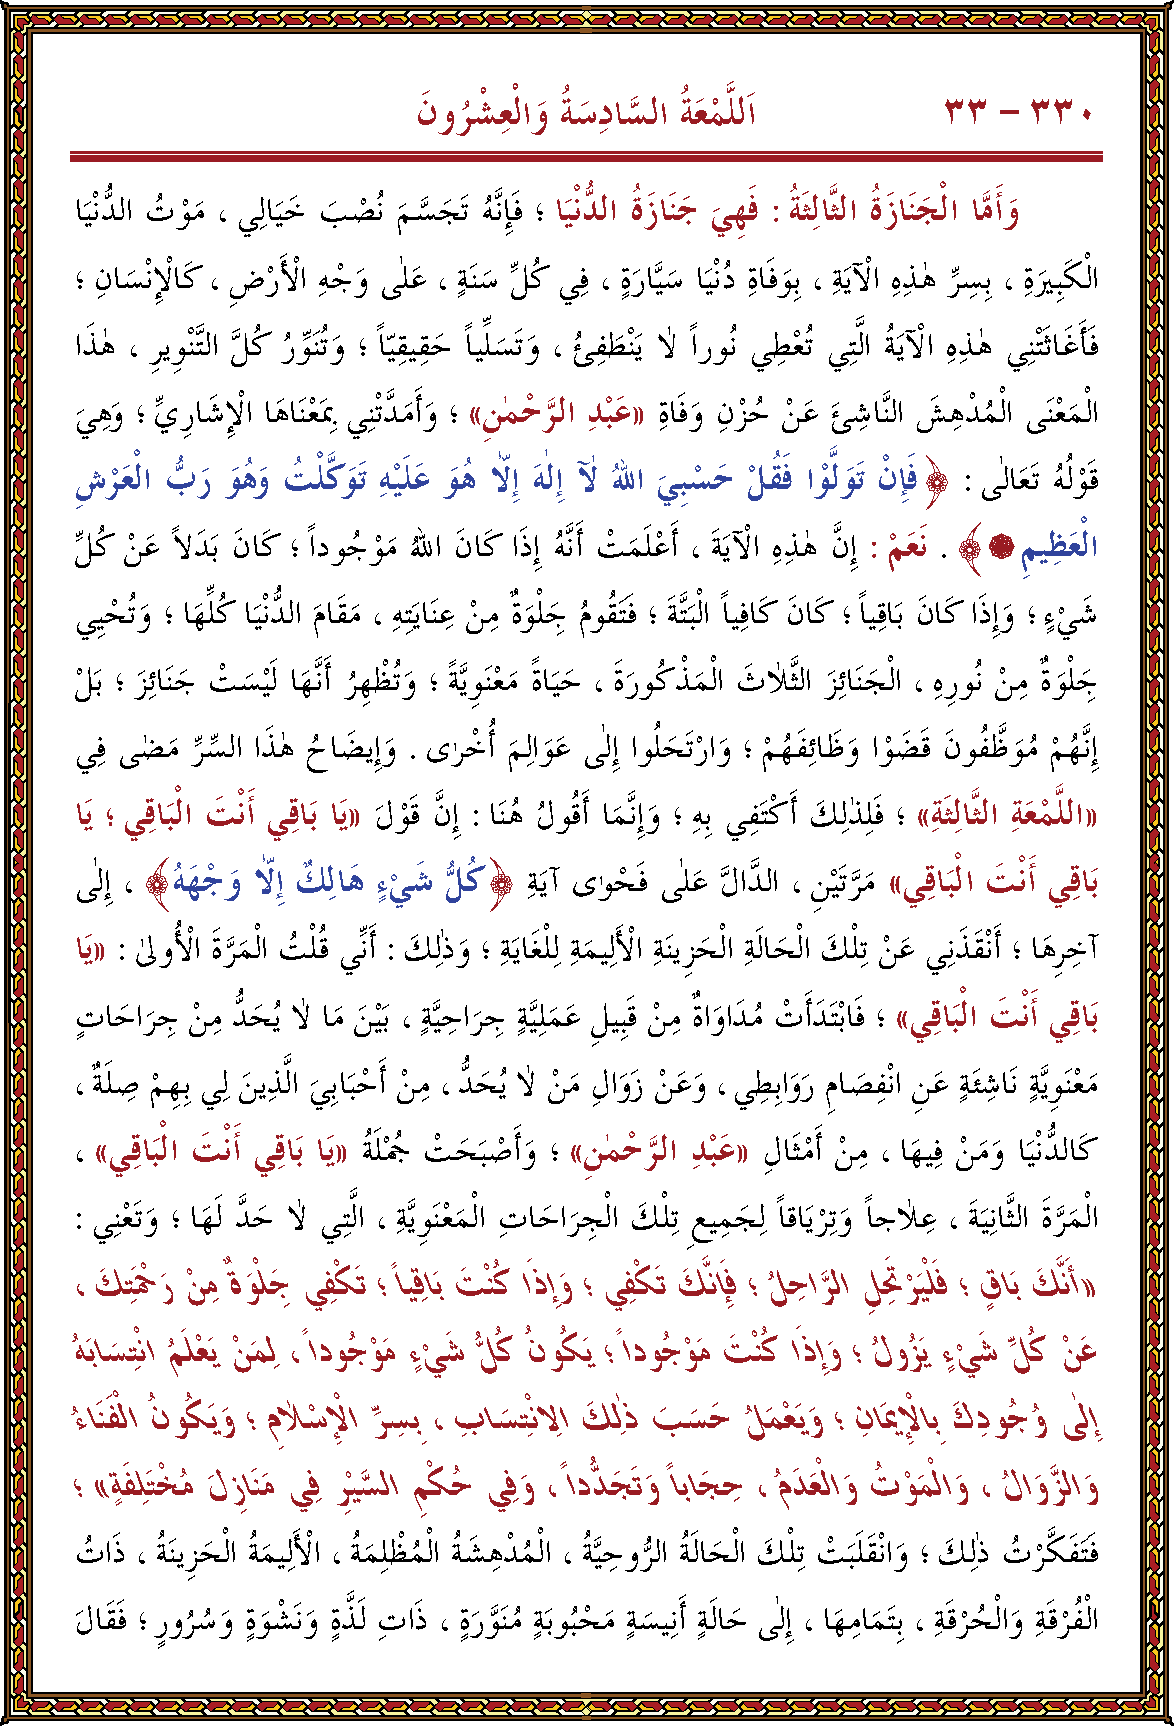 ٣٣٠ – ٣٣ اَللَّمْعَةُ السَّادِسَةُ وَالْعِشْرُونَ
وَأَمَّا الْجَنَازَةُ الثَّالِثَةُ : فَهِيَ جَنَازَةُ الدُّنْيَا ؛ فَإِنَّهُ تَجَسَّمَ نُصْبَ خَيَالِي ، مَوْتُ الدُّنْيَا
الْكَبِيرَةِ ، بِسِرِّ هٰذِهِ الْآيَةِ ، بِوَفَاةِ دُنْيَا سَيَّارَةٍ ، فِي كُلِّ سَنَةٍ ، عَلٰى وَجْهِ الْأَرْضِ ، كَالْإِنْسَانِ ؛
فَأَغَاثَتْنِي هٰذِهِ الْآيَةُ الَّتِي تُعْطِي نُوراً لَا يَنْطَفِئُ ، وَتَسَلِّياً حَقِيقِيّاً ؛ وَتُنَوِّرُ كُلَّ التَّنْوِيرِ ، هٰذَا
الْمَعْنَى الْمُدْهِشَ النَّاشِئَ عَنْ حُزْنِ وَفَاةِ «عَبْدِ الرَّحْمٰنِ» ؛ وَأَمَدَّتْنِي بِمَعْنَاهَا الْإِشَارِيِّ ؛ وَهِيَ
قَوْلُهُ تَعَالٰى : ﴿فَإِنْ تَوَلَّوْا فَقُلْ حَسْبِيَ اللهُ لَآ إِلٰهَ إِلَّا هُوَ عَلَيْهِ تَوَكَّلْتُ وَهُوَ رَبُّ الْعَرْشِ
الْعَظِيمِ ۝﴾ . نَعَمْ : إِنَّ هٰذِهِ الْآيَةَ ، أَعْلَمَتْ أَنَّهُ إِذَا كَانَ اللهُ مَوْجُوداً ؛ كَانَ بَدَلاً عَنْ كُلِّ
شَيْءٍ ؛ وَإِذَا كَانَ بَاقِياً ؛ كَانَ كَافِياً الْبَتَّةَ ؛ فَتَقُومُ جِلْوَةٌ مِنْ عِنَايَتِهِ ، مَقَامَ الدُّنْيَا كُلِّهَا ؛ وَتُحْيِي
جِلْوَةٌ مِنْ نُورِهِ ، الْجَنَائِزَ الثَّلَاثَ الْمَذْكُورَةَ ، حَيَاةً مَعْنَوِيَّةً ؛ وَتُظْهِرُ أَنَّهَا لَيْسَتْ جَنَائِزَ ؛ بَلْ
إِنَّهُمْ مُوَظَّفُونَ قَضَوْا وَظَائِفَهُمْ ؛ وَارْتَحَلُوا إِلٰى عَوَالِمَ أُخْرٰى . وَإِيضَاحُ هٰذَا السِّرِّ مَضٰى فِي
«اللَّمْعَةِ الثَّالِثَةِ» ؛ فَلِذٰلِكَ أَكْتَفِي بِهِ ؛ وَإِنَّمَا أَقُولُ هُنَا : إِنَّ قَوْلَ «يَا بَاقِي أَنْتَ الْبَاقِي ؛ يَا
بَاقِي أَنْتَ الْبَاقِي» مَرَّتَيْنِ ، الدَّالَّ عَلٰى فَحْوٰى آيَةِ ﴿كُلُّ شَيْءٍ هَالِكٌ إِلَّا وَجْهَهُ﴾ ، إِلٰى
آخِرِهَا ؛ أَنْقَذَنِي عَنْ تِلْكَ الْحَالَةِ الْحَزِينَةِ الْأَلِيمَةِ لِلْغَايَةِ ؛ وَذٰلِكَ : أَنِّي قُلْتُ الْمَرَّةَ الْأُولٰى : «يَا
بَاقِي أَنْتَ الْبَاقِي» ؛ فَابْتَدَأَتْ مُدَاوَاةٌ مِنْ قَبِيلِ عَمَلِيَّةٍ جِرَاحِيَّةٍ ، بَيْنَ مَا لَا يُحَدُّ مِنْ جِرَاحَاتٍ
مَعْنَوِيَّةٍ نَاشِئَةٍ عَنِ انْفِصَامِ رَوَابِطِي ، وَعَنْ زَوَالِ مَنْ لَا يُحَدُّ ، مِنْ أَحْبَابِيَ الَّذِينَ لِي بِهِمْ صِلَةٌ ،
كَالدُّنْيَا وَمَنْ فِيهَا ، مِنْ أَمْثَالِ «عَبْدِ الرَّحْمٰنِ» ؛ وَأَصْبَحَتْ جُمْلَةُ «يَا بَاقِي أَنْتَ الْبَاقِي» ،
الْمَرَّةَ الثَّانِيَةَ ، عِلَاجاً وَتِرْيَاقاً لِجَمِيعِ تِلْكَ الْجِرَاحَاتِ الْمَعْنَوِيَّةِ ، الَّتِي لَا حَدَّ لَهَا ؛ وَتَعْنِي :
«أَنَّكَ بَاقٍ ؛ فَلْيَرْتَحِلِ الرَّاحِلُ ؛ فَإِنَّكَ تَكْفِي ؛ وَإِذَا كُنْتَ بَاقِياً ؛ تَكْفِي جِلْوَةٌ مِنْ رَحْمَتِكَ ،
عَنْ كُلِّ شَيْءٍ يَزُولُ ؛ وَإِذَا كُنْتَ مَوْجُوداً ؛ يَكُونُ كُلُّ شَيْءٍ مَوْجُوداً ، لِمَنْ يَعْلَمُ انْتِسَابَهُ
إِلٰى وُجُودِكَ بِالْإِيمَانِ ؛ وَيَعْمَلُ حَسَبَ ذٰلِكَ الِانْتِسَابِ ، بِسِرِّ الْإِسْلَامِ ؛ وَيَكُونُ الْفَنَاءُ
وَالزَّوَالُ ، وَالْمَوْتُ وَالْعَدَمُ ، حِجَاباً وَتَجَدُّداً ، وَفِي حُكْمِ السَّيْرِ فِي مَنَازِلَ مُخْتَلِفَةٍ» ؛
فَتَفَكَّرْتُ ذٰلِكَ ؛ وَانْقَلَبَتْ تِلْكَ الْحَالَةُ الرُّوحِيَّةُ ، الْمُدْهِشَةُ الْمُظْلِمَةُ ، الْأَلِيمَةُ الْحَزِينَةُ ، ذَاتُ
الْفُرْقَةِ وَالْحُرْقَةِ ، بِتَمَامِهَا ، إِلٰى حَالَةٍ أَنِيسَةٍ مَحْبُوبَةٍ مُنَوَّرَةٍ ، ذَاتِ لَذَّةٍ وَنَشْوَةٍ وَسُرُورٍ ؛ فَقَالَ